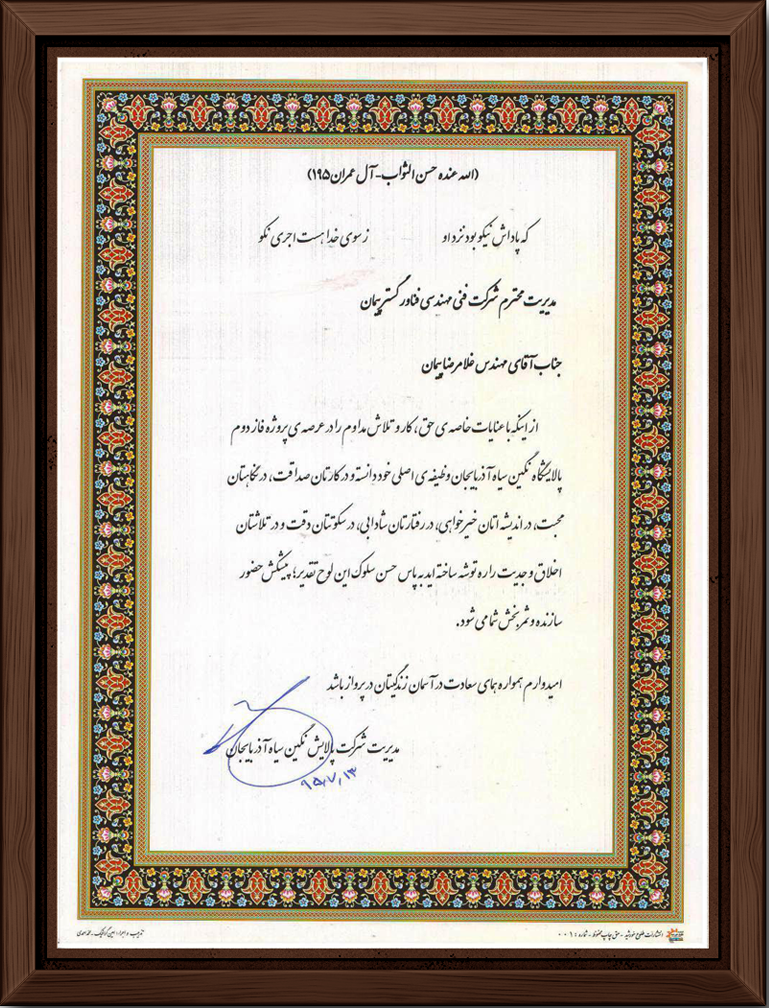 (الله عنده حسن الثواب-آل عمران ۱۹۵)
که پاداش نیکو بود نزد او زسوی خدا هست اجری نکو
مدیریت محترم شرکت فنی مهندسی فناور گستر پیمان
جناب آقای مهندس غلامرضا پیمان
از اینکه با عنایات خاصه ی حق، کار و تلاش مداوم را در عرصه ی پروژه فاز دوم
پالایشگاه نگین سیاه آذربایجان وظیفه ی اصلی خود دانسته و در کارتان صداقت، در نگاهتان
محبت، در اندیشه اتان خیرخواهی، در رفتارتان شادابی، در سکوتتان دقت و در تلاشتان
اخلاق و جدیت را ره توشه ساخته اید به پاس حسن سلوک این لوح تقدیر؛ پیشکش حضور
سازنده و ثمربخش شما می شود.
امیدوارم همواره همای سعادت در آسمان زندگیتان در پرواز باشد
مدیریت شرکت پالایش نگین سیاه آذربایجان
۹۵,۷,۱۳
انتشارات طلوع خورشید - حق چاپ محفوظ - شماره: ۰۰۱
تذهیب و اجرا: